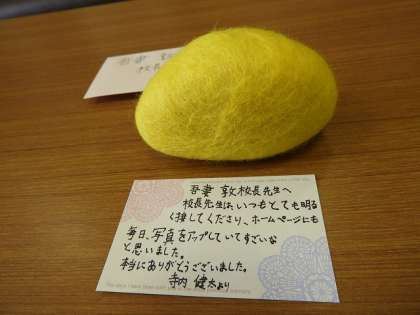 吾妻 敦
校長
吾妻 敦校長先生へ
校長先生は、いつもとても明る
く接してくださり、ホームページにも
毎日、写真をアップしていてすごいな
と思いました。
本当にありがとうございました。
寺内 健太より